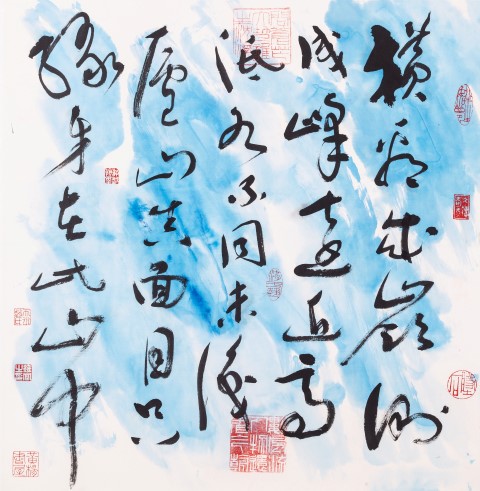 横看成嶺側
成峰遠近高
低各不同未識
廬山真面目只
緣身在此山中